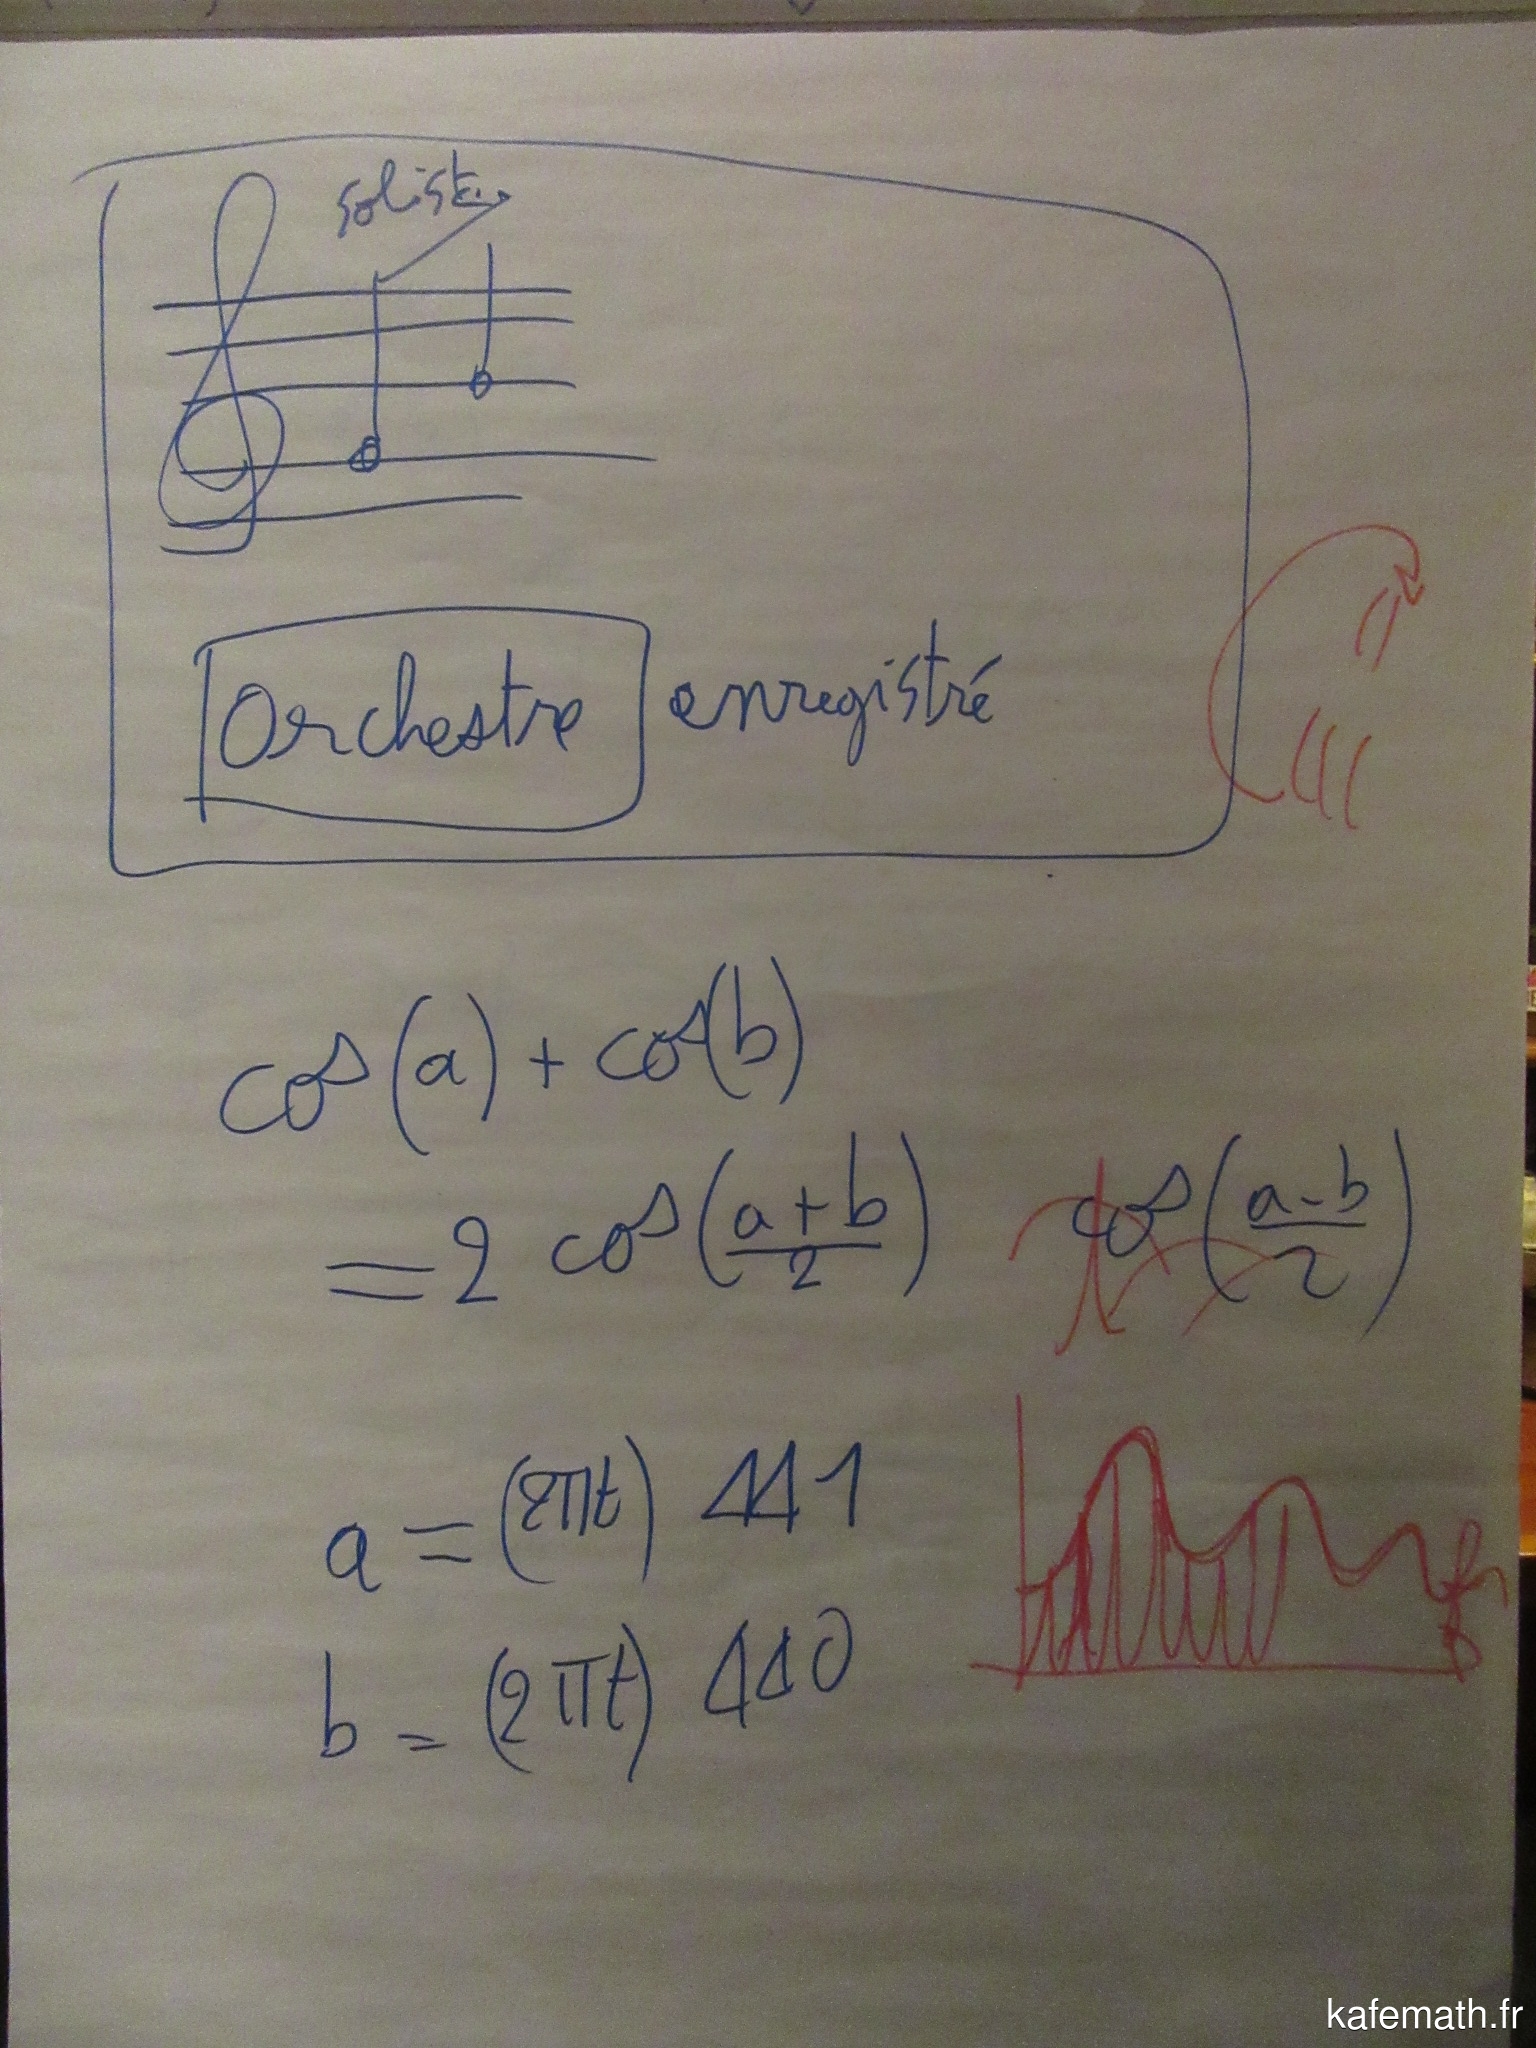 soliste
Orchestre enregistré
cos(a) + cos(b)
= 2 cos(a+b/2) cos(a-b/2)
a = (2πt) 441
b = (2πt) 440
kafemath.fr